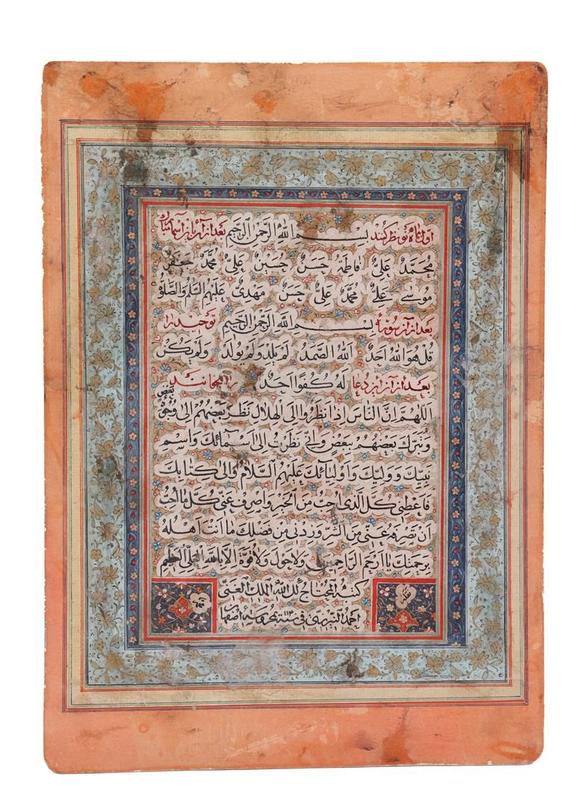 اول نگاه نظر کند بسم الله الرحمن الرحیم بعد از آن
محمد علي فاطمة حسن حسین علي محمد جعفر
موسی علي محمد علي حسن مهدي علیهم السلام والصلوة
بعد از آن سوره بسم الله الرحمن الرحيم توحید را
قل هو الله احد الله الصمد لم یلد ولم یولد ولم یکن
بعد از آن این دعا له کفوا احد بخواند
اللهم ان الناس اذا نظروا الی الهلال نظر بعضهم الی وجوه بعض
وتبرك بعضهم ببعض واني نظرت الی اسمائك واسم
نبيك ووليك واولیائك علیهم السلام والی کتابك
فاعطني کل الذي احب من الخیر واصرف عني کل ما احب
ان تصرفه عني من الشر وزدني من فضلك ما انت اهله
برحمتك یا ارحم الراحمین ولا حول ولا قوة الا بالله العلي العظیم
کتبه المحتاج الله الملك الغني
احمد النیریزي في سنة